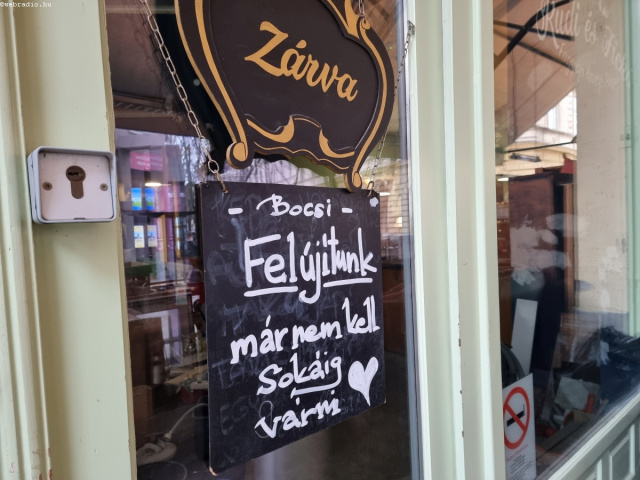 ©webradio.hu
Zárva
- Bocsi -
Felújítunk
már nem kell
Sokáig
várni
Rudi és